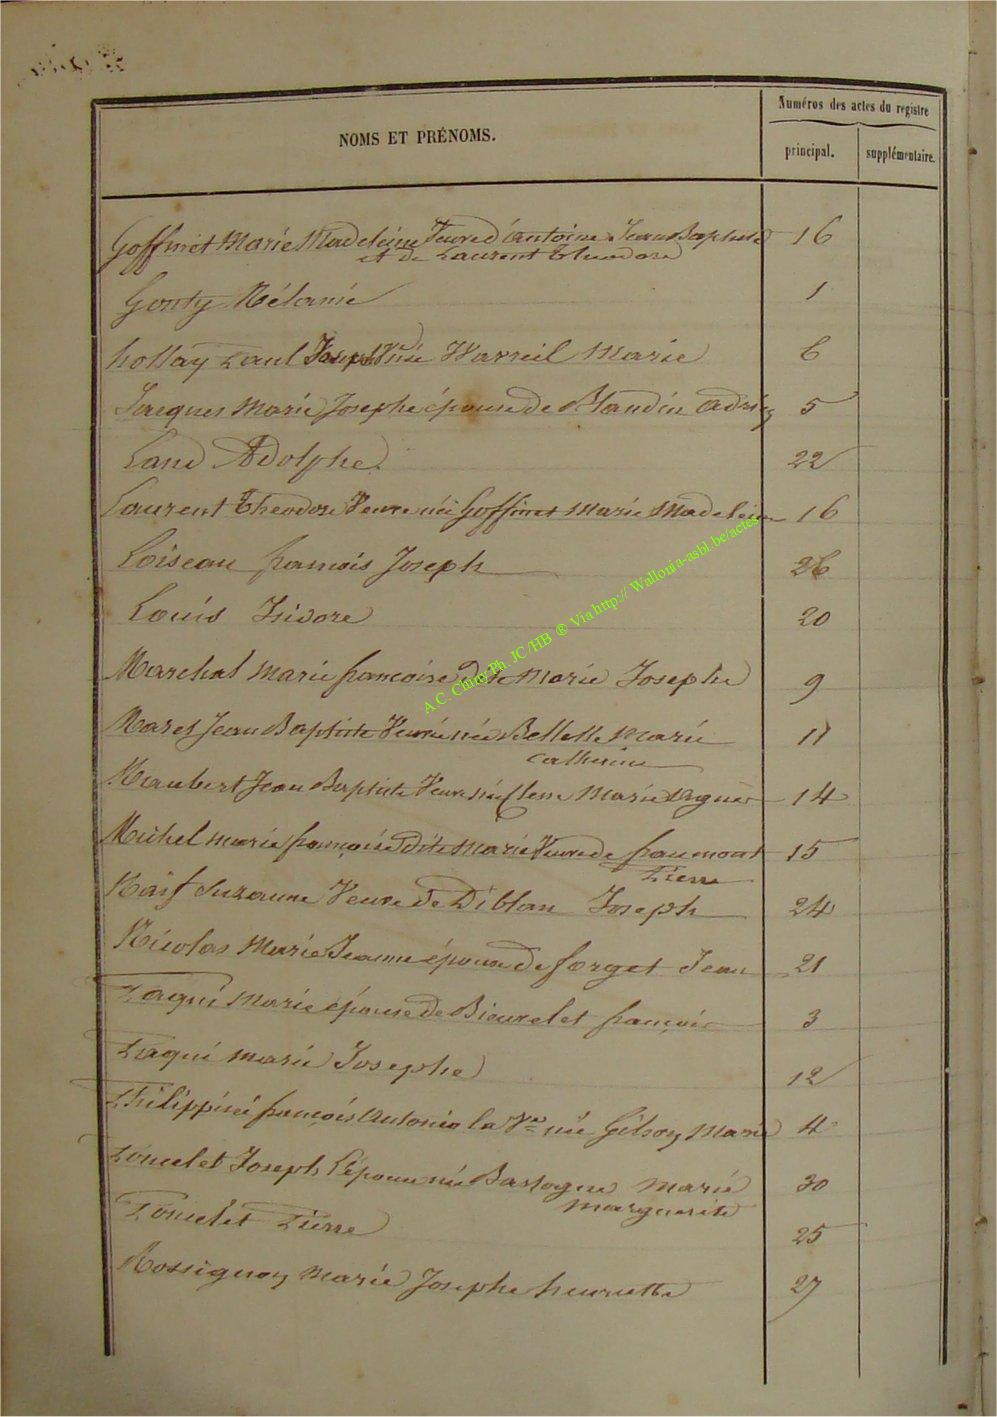 Numéros des actes du registre
NOMS ET PRÉNOMS.
principal. supplémentaire.
Goffinet Marie Madeleine Veuve d'Antoine Jean Baptiste 16
et de Laurent Theodore
Gonty Mélanie 1
hollay Paul Joseph Vve née Warreil Marie 6
Jacques Marie Josephe épouse de Blandin Adrien 5
Land Adolphe 22
Laurent Theodore Veuve née Goffinet Marie Madeleine 16
Loiseau françois Joseph 26
Louis Isidore 20
Marchal Marie françoise dite Marie Josephe 9
Maret Jean Baptiste Veuve née Bellelle Marie 11
Catherine
Maubert Jean Baptiste Veuve née Clem Marie Agnès 14
Michel Marie françoise dite Marie Veuve de fraumont 15
Pierre
Naif Suzanne Veuve de Diblan Joseph 24
Nicolas Marie Jeanne épouse de forget Jean 21
Paqui Marie épouse de Bieuvelet françois 3
Paqui Marie Josephe 12
Philippine françois Antonio la Ve née Gilson Marie 4
Poncelet Joseph l'épouse née Bastogne Marie 30
Marguerite
Poncelet Pierre 25
Rossignon Marie Josephe henriette 27
A.C. Chiny Ph. JC/HB ® Via http:// Wallonia-asbl.be/actes